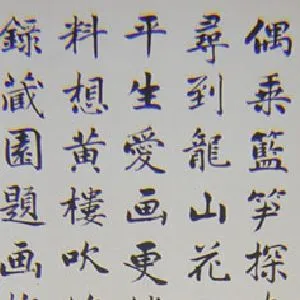 偶乘籃笋探
尋到龍山花
平生愛画更
料想黄樓吹
錄藏園題画